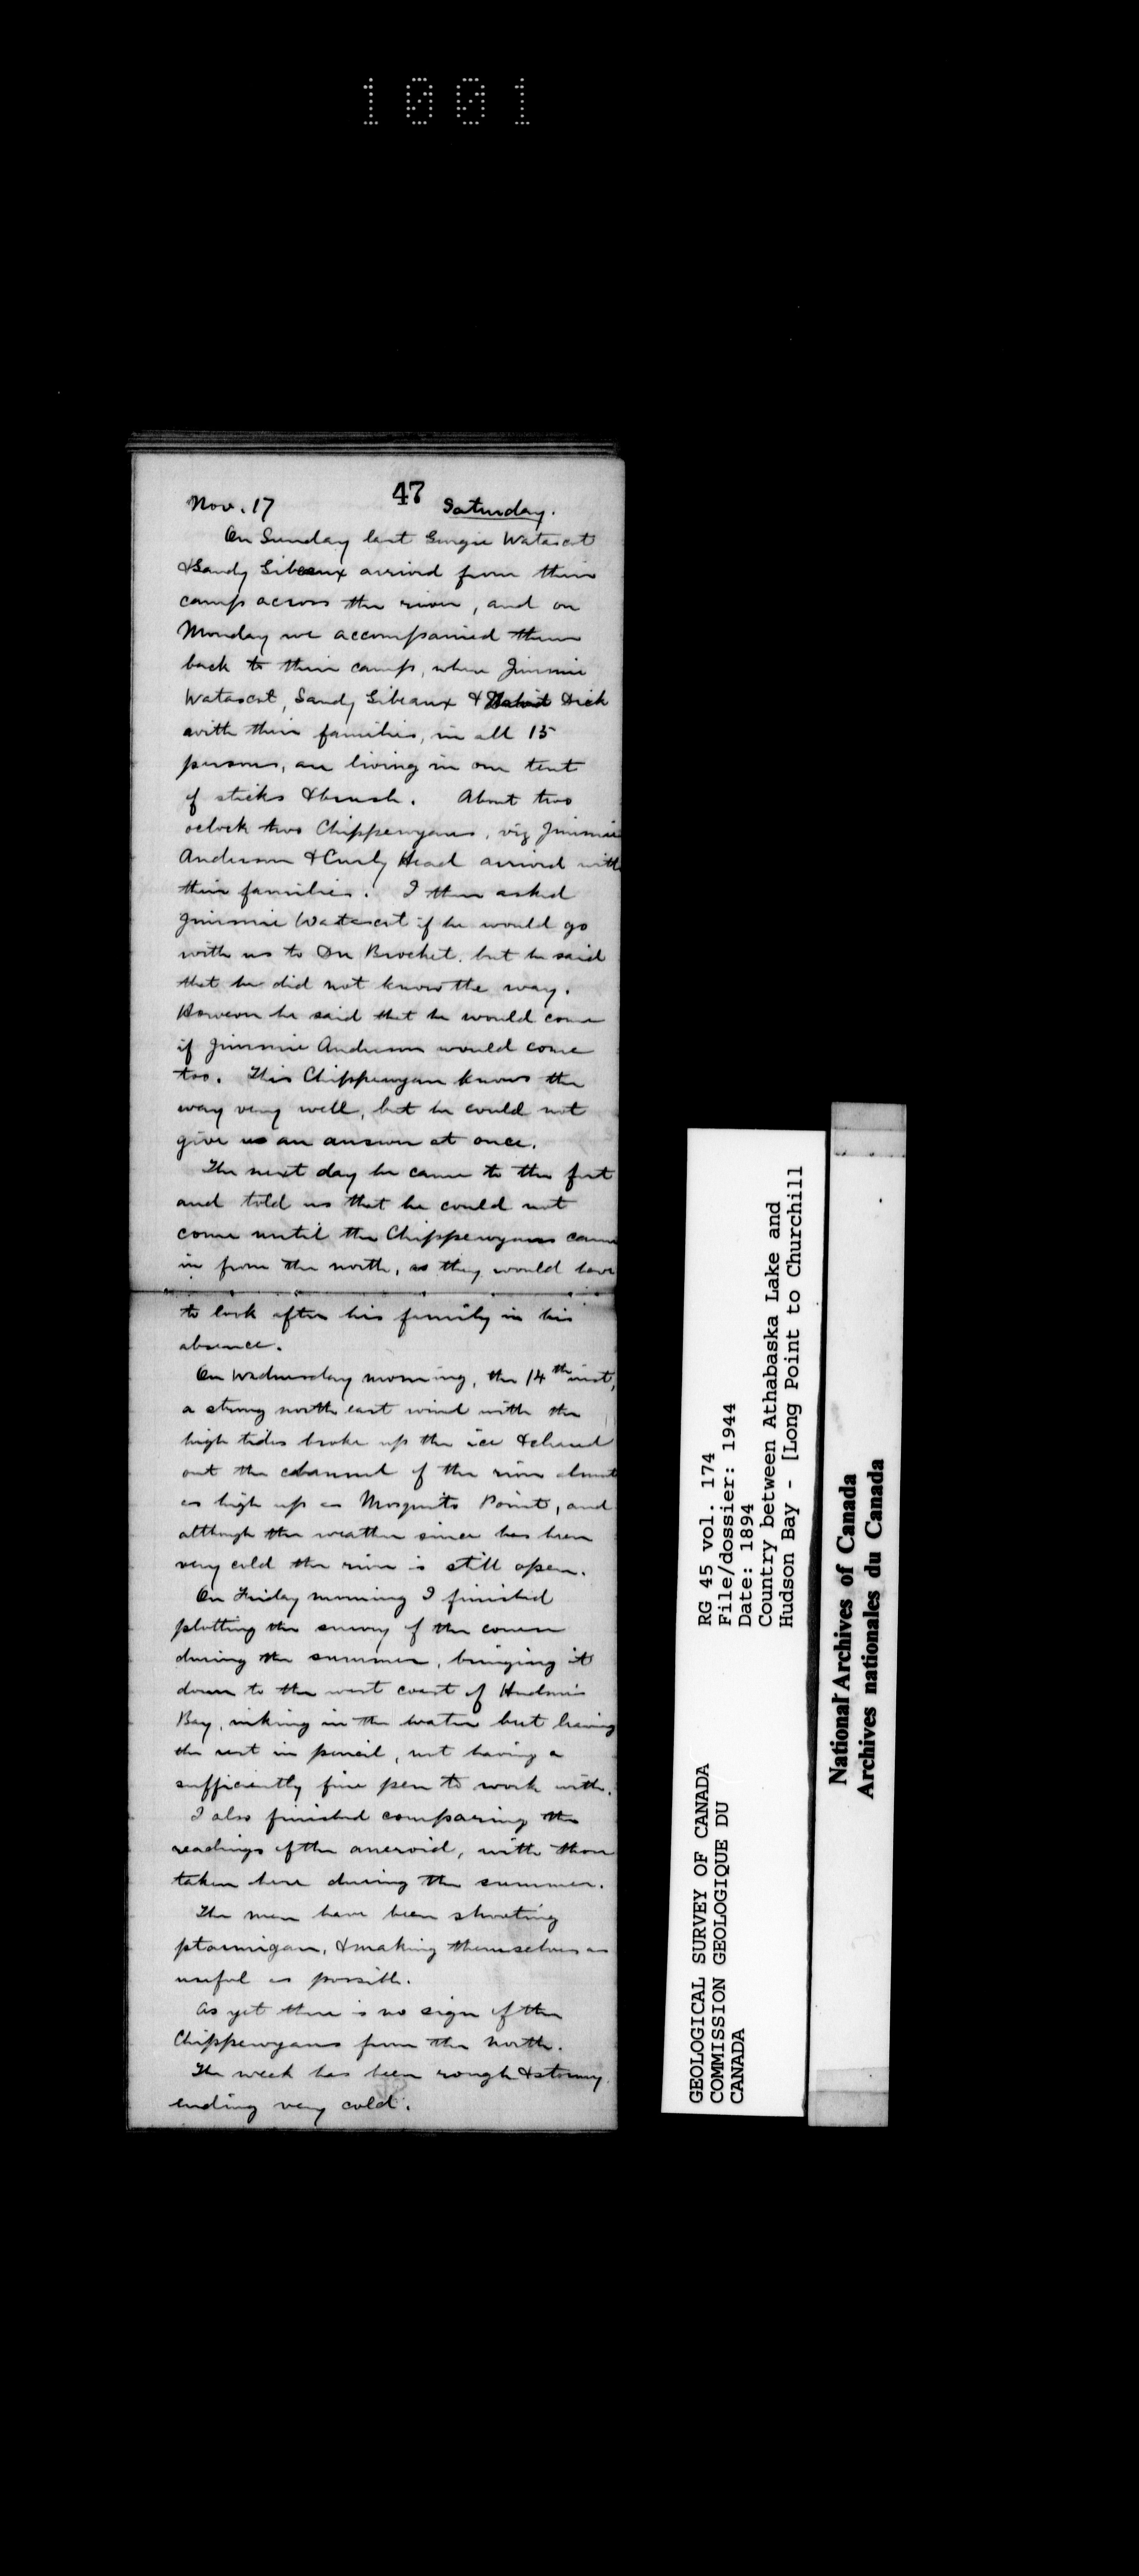 1001
47
Nov. 17 Saturday.
On Sunday last Watascat
& Sandy Gibeaux arrived from their
camp across the river, and on
Monday we accompanied them
back to their camp, where Jimmie
Watascat, Sandy Gibeaux & Dick
with their families, in all 15
persons, are living in one tent
of sticks & brush. About two
oclock two Chippewyans, viz Jimmie
Anderson & Curly Head arrived with
their families. I then asked
Jimmie Watascat if he would go
with us to Du Brochet. but he said
that he did not know the way.
However he said that he would come
if Jimmie Anderson would come
too. This Chippewyan knows the
way very well, but he could not
give us an answer at once.
The next day he came to the fort
and told us that he could not
come until the Chippewyans came
in from the north, as they would have
to look after his family in his
absence.
On Wednesday morning, the 14th inst,
a strong north east wind with the
high tides broke up the ice & cleared
out the channel of the river almost
as high up as Mosquito Point, and
although the weather since has been
very cold the river is still open.
On Friday morning I finished
plotting the survey of the course
during the summer, bringing it
down to the west coast of Hudson's
Bay, inking in the water but leaving
the rest in pencil, not having a
sufficiently fine pen to work with.
I also finished comparing the
readings of the aneroid, with those
taken here during the summer.
The men have been shooting
ptarmigan, & making themselves as
useful as possible.
As yet there is no sign of the
Chippewyans from the north.
The week has been rough & stormy,
ending very cold.
GEOLOGICAL SURVEY OF CANADA
COMMISSION GEOLOGIQUE DU
CANADA
RG 45 vol. 174
File/dossier: 1944
Date: 1894
Country between Athabaska Lake and
Hudson Bay - [Long Point to Churchill
National Archives of Canada
Archives nationales du Canada